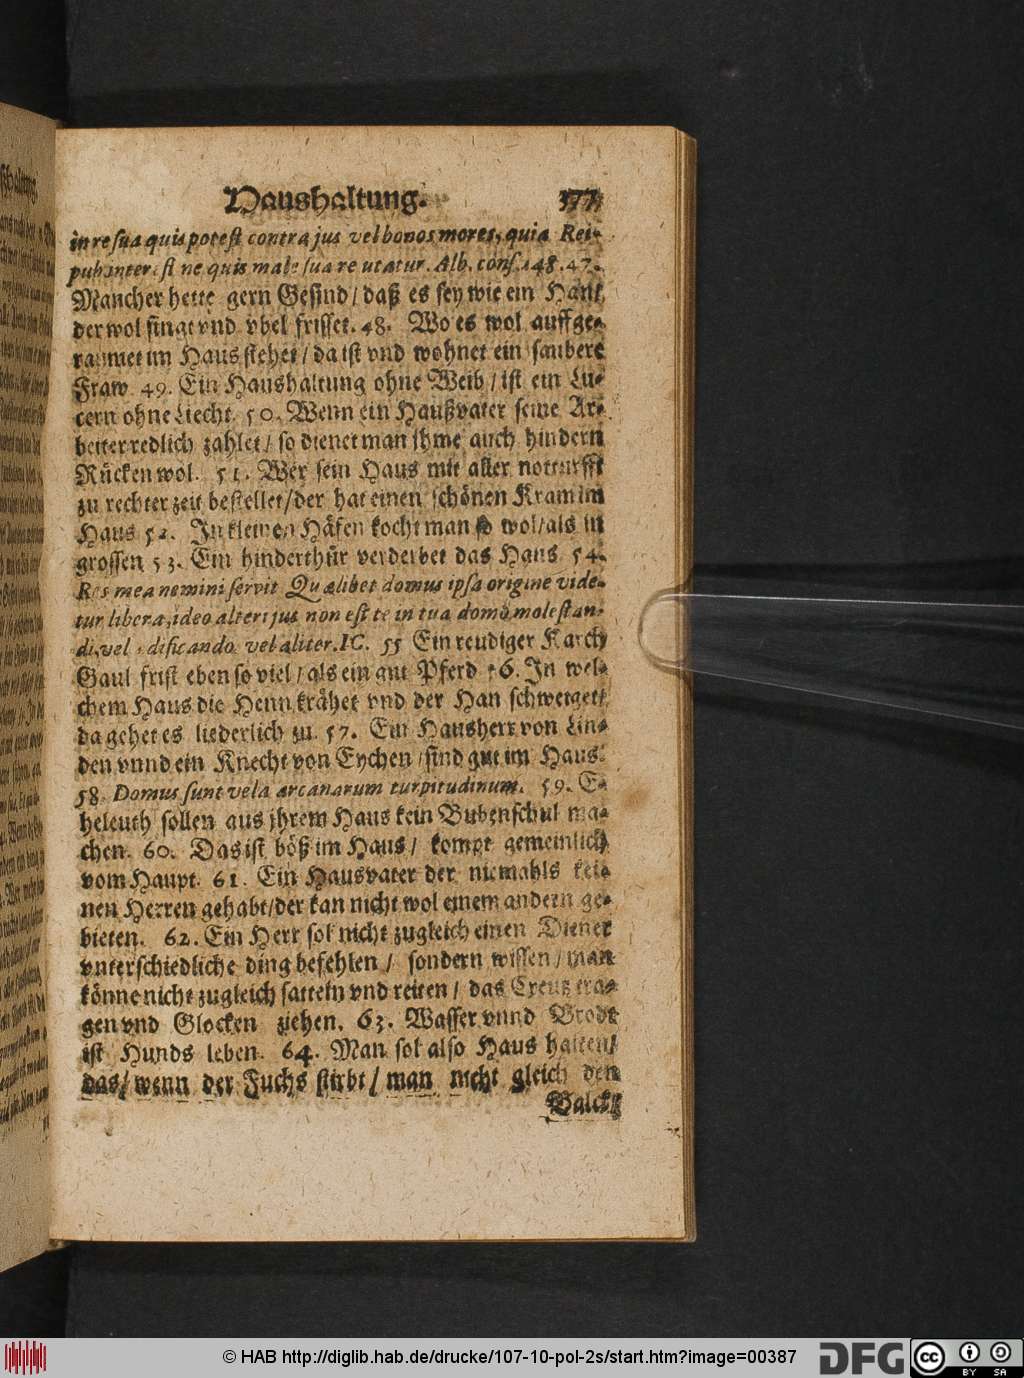 Haushaltung. 377
in re sua quis potest contra jus vel bonos mores, quia Rei-
pub. interest ne quis male sua re utatur. Alb. cons. 148. 47.
Mancher hette gern Gesind / daß es sey wie ein Hanf
der wol singt vnd vbel frisset. 48. Wo es wol auffge-
raumet im Haus stehet / da ist vnd wohnet ein saubere
Fraw 49. Ein Haushaltung ohne Weib / ist ein Lu-
cern ohne Liecht. 50. Wenn ein Haußvater seine Ar-
beiter redlich zahlet / so dienet man jhme auch hindern
Rücken wol. 51. Wer sein Haus mit aller notturfft
zu rechter zeit bestellet / der hat einen schönen Kram im
Haus 52. In kleinen Häfen kocht man so wol / als in
grossen 53. Ein hinderthür verderbet das Haus 54.
Res mea nemini servit Quælibet domus ipsa origine vide-
tur libera, ideo alteri jus non est te in tua domo molestan-
di, vel ædificando, vel aliter. IC. 55 Ein reudiger Karch
Gaul frist eben so viel / als ein gut Pferd 56. In wel-
chem Haus die Henn krähet vnd der Han schweiget
da gehet es liederlich zu. 57. Ein Hausherr von Lin-
den vnnd ein Knecht von Eychen / sind gut im Haus.
58. Domus sunt vela arcanarum turpitudinum. 59. E-
heleuth sollen aus jhrem Haus kein Bubenschul ma-
chen. 60. Das ist böß im Haus / kompt gemeinlich
vom Haupt. 61. Ein Hausvater der niemahls kei-
nen Herren gehabt / der kan nicht wol einem andern ge-
bieten. 62. Ein Herr sol nicht zugleich einen Diener
vnterschiedliche ding befehlen / sondern wissen / man
könne nicht zugleich satteln vnd reiten / das Creutz tra-
gen vnd Glocken ziehen. 63. Wasser vnnd Brodt
ist Hunds leben. 64. Man sol also Haus halten /
das / wenn der Fuchs stirbt / man nicht gleich den
Balck
© HAB http://diglib.hab.de/drucke/107-10-pol-2s/start.htm?image=00387 DFG cc BY SA